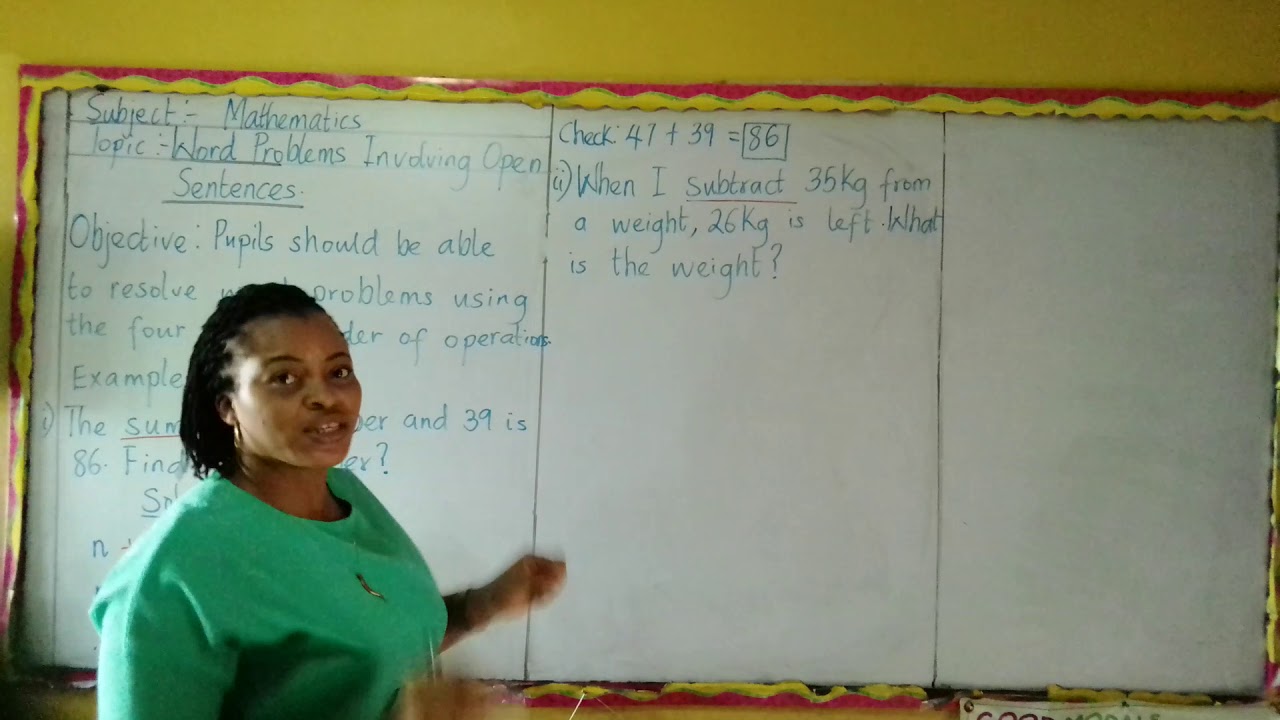 Subject:- Mathematics
Topic:- Word Problems Involving Open
Sentences.
Objective: Pupils should be able
to resolve problems using
the four of operations.
Example
i) The sum and 39 is
86. Find
n
Check: 47 + 39 = 86
ii) When I subtract 35Kg from
a weight, 26Kg is left. What
is the weight?